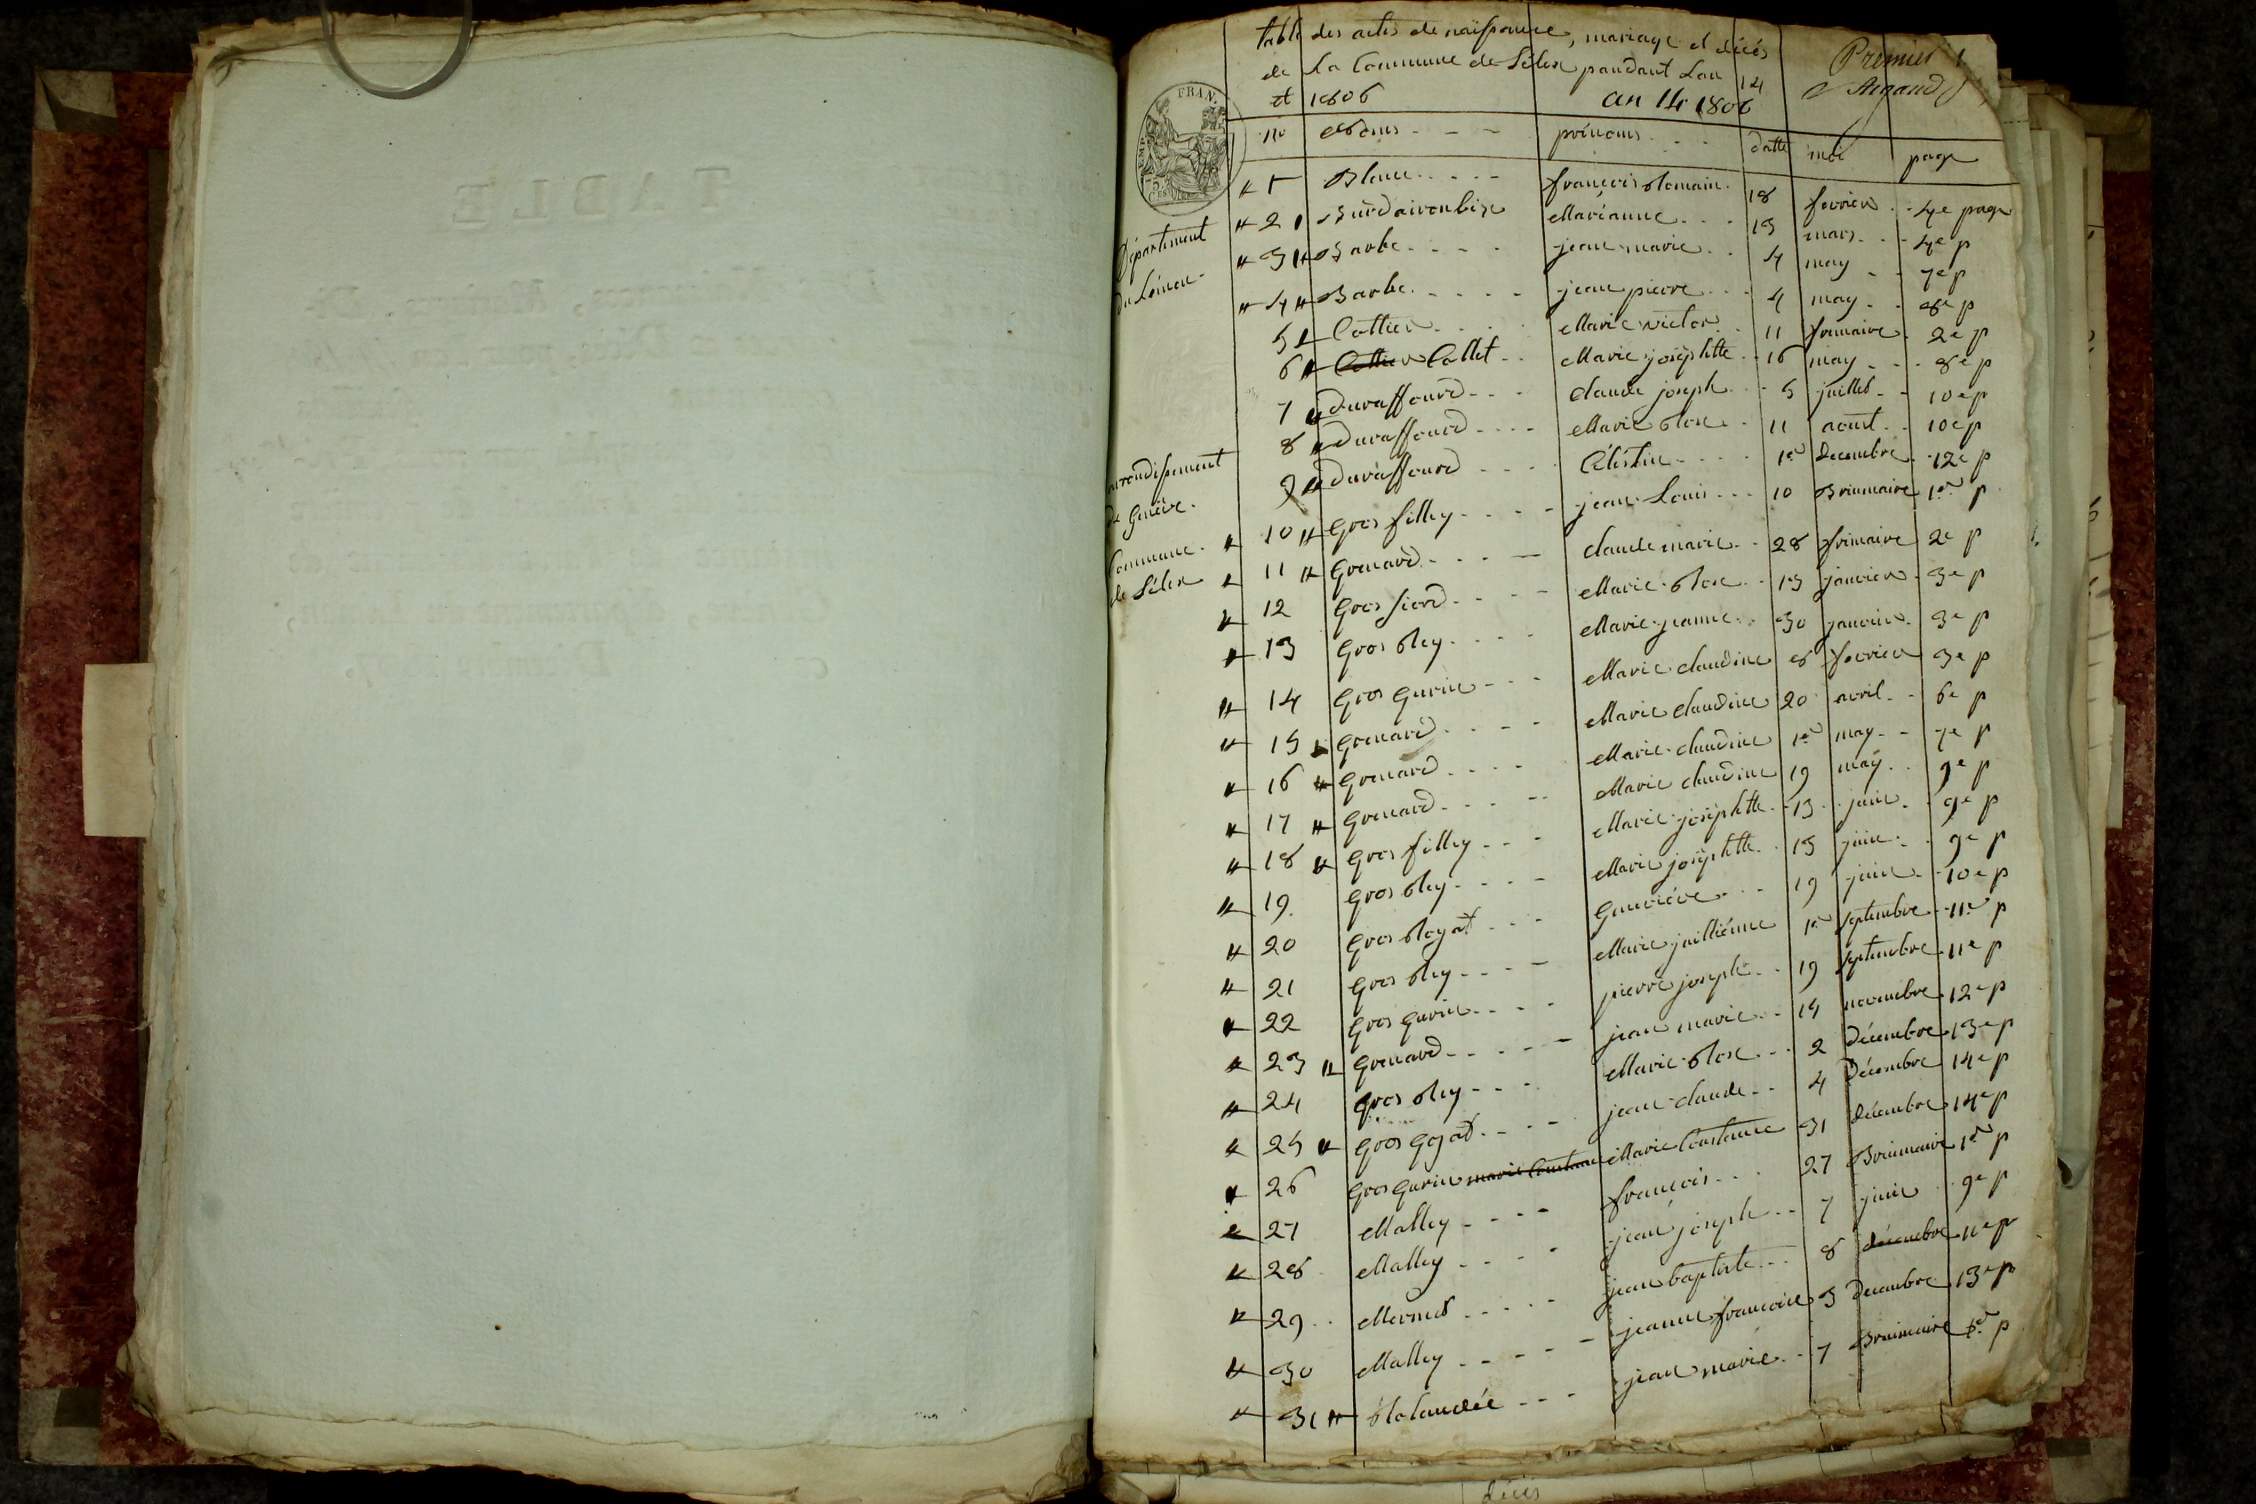 TABLE
table des actes de naissance, mariage et décés
de La Commune de Lélex pandant Lan 14
et 1806 an 14 1806
Premier
FRAN.
EMP.
75.
Département
du Léman
arrondissement
de Genève.
Commune
de Lélex
no Noms prénoms datte moi page
1 Blanc françois Romain 18 fevrier 4e page
2 Marianne 15 mars 4e p
3 Barbe jean marie 4 may 7e p
4 Barbe jean pierre 4 may 8e p
5 Cottier Marie victor 11 frimaire 2e p
6 Cottier Collet Marie josephtte 16 may 8e p
7 duraffourd claude joseph 5 juillet 10e p
8 duraffourd Marie Rose 11 aoust 10e p
9 duraffourd Célestin 1er decembre 12e p
10 Gros filley jean Louis 10 Brumaire 1er p
11 Grenard claude marie 28 frimaire 2e p
12 Gros Marie Rose 15 janvier 3e p
13 Gros Rey Marie jeanne 30 janvier 3e p
14 Gros gurin Marie claudine 8 fevrier 3e p
15 Grenard Marie claudine 20 avril 6e p
16 Grenard Marie claudine 1er may 7e p
17 Grenard Marie claudine 19 may 9e p
18 Gros filley Marie josephtte 13 juin 9e p
19 Gros Rey Marie josephtte 15 juin 9e p
20 Gros Reyat Geneviève 19 juin 10e p
21 Gros Rey Marie 1er septembre 11e p
22 Gros gurin pierre joseph 19 septembre 11e p
23 Grenard jean marie 14 novembre 12e p
24 Gros Rey Marie Rose 2 décembre 13e p
25 Gros Gojat jean claude 4 décembre 14e p
26 Gros gurin marie Constance Marie Constance 31 décembre 14e p
27 Malley françois 27 Brumaire 1er p
28 Malley jean joseph 7 juin 9e p
29 Mermet jean baptiste 8 décembre 11e p
30 Malley jeanne françoise 3 decembre 13e p
31 Rolandéz jean marie 7 Brumaire 1er p
décés